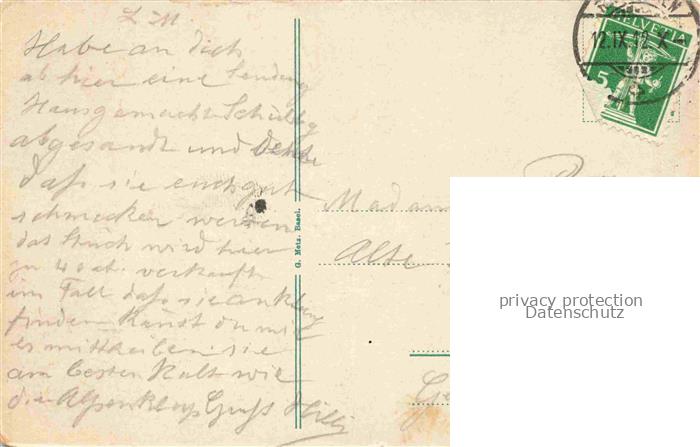 L M.
Habe an dich
ab hier eine Sendung
Hausgemacht
abgesandt und denke
daß sie euch gut
schmecken werden
das Stück wird hier
zu 40 ct. verkauft
im Fall daß sie Anklang
finden kanst du mir
es mittheilen. sie
am besten kalt wie
die Gruß Willi
G. Metz, Basel.
HELVETIA
5
12.IX.12.X
Madam
Alte
Ge
privacy protection
Datenschutz